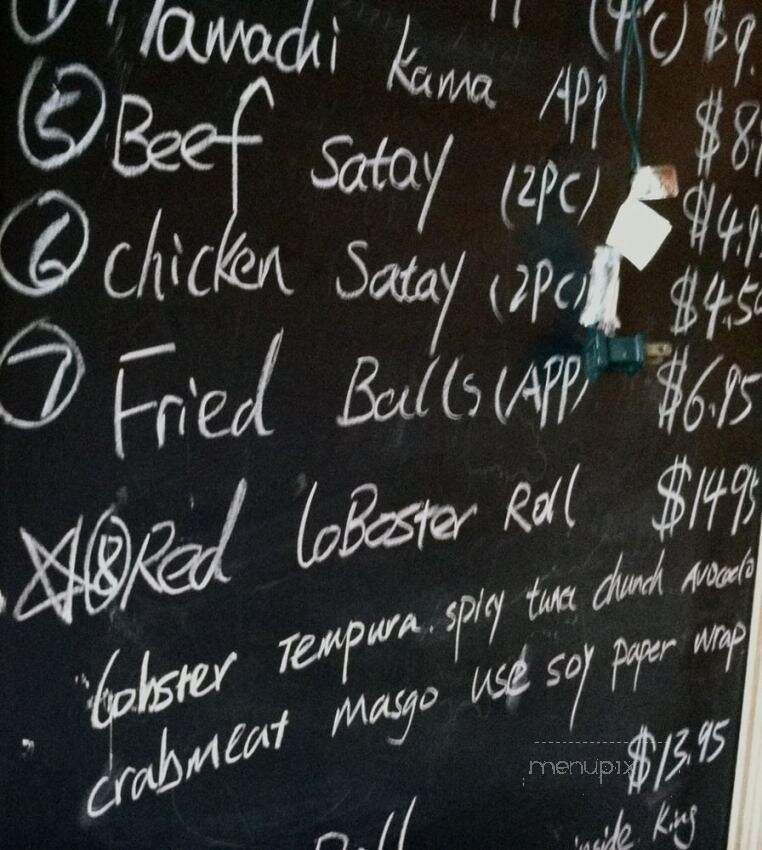 Yamachi Kama APP (4PC) $9.
5 Beef Satay (2PC) $8.
6 Chicken Satay (2PC) $4.9
7 Fried Balls (APP) $4.50
$6.95
8 Red loBoster Roll $14.95
Lobster Tempura. spicy tuna chunch Avocado
crabmeat masgo use soy paper wrap
$13.95
menupix
Roll inside King